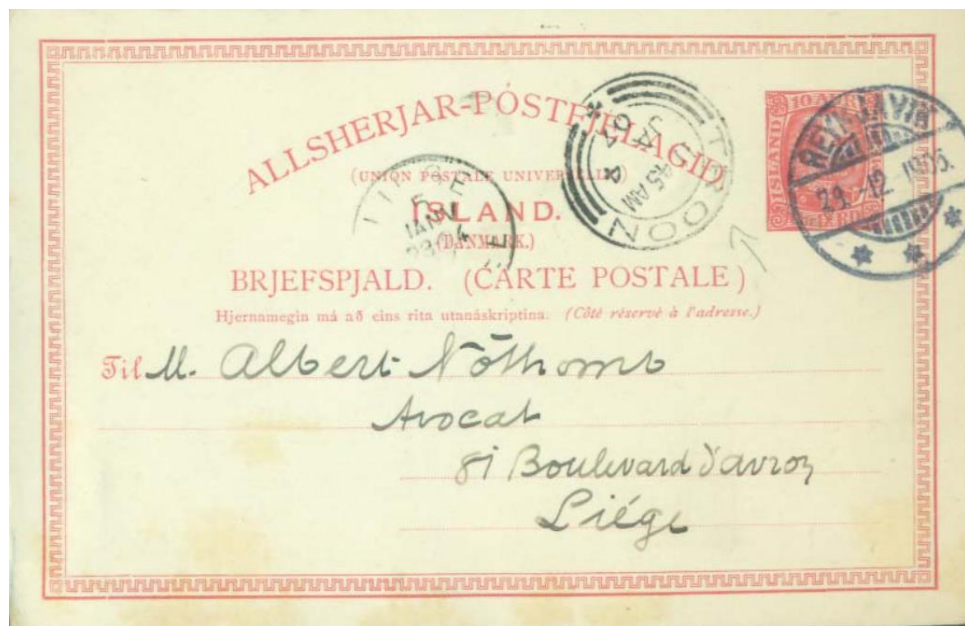 ALLSHERJAR-PÓSTFJELAGID.
(UNION POSTALE UNIVERSELLE)
ÍSLAND.
(DANMARK.)
BRJEFSPJALD. (CARTE POSTALE)
Hjernamegin má að eins rita utanáskriptina. (Côté réservé à l'adresse.)
Til M. Albert Nothomb
Avocat
81 Boulevard d'avroy
Liége
ISLAND
10 AUR
REYKJAVIK
TROON
JA
45 AM
04
5
JANV